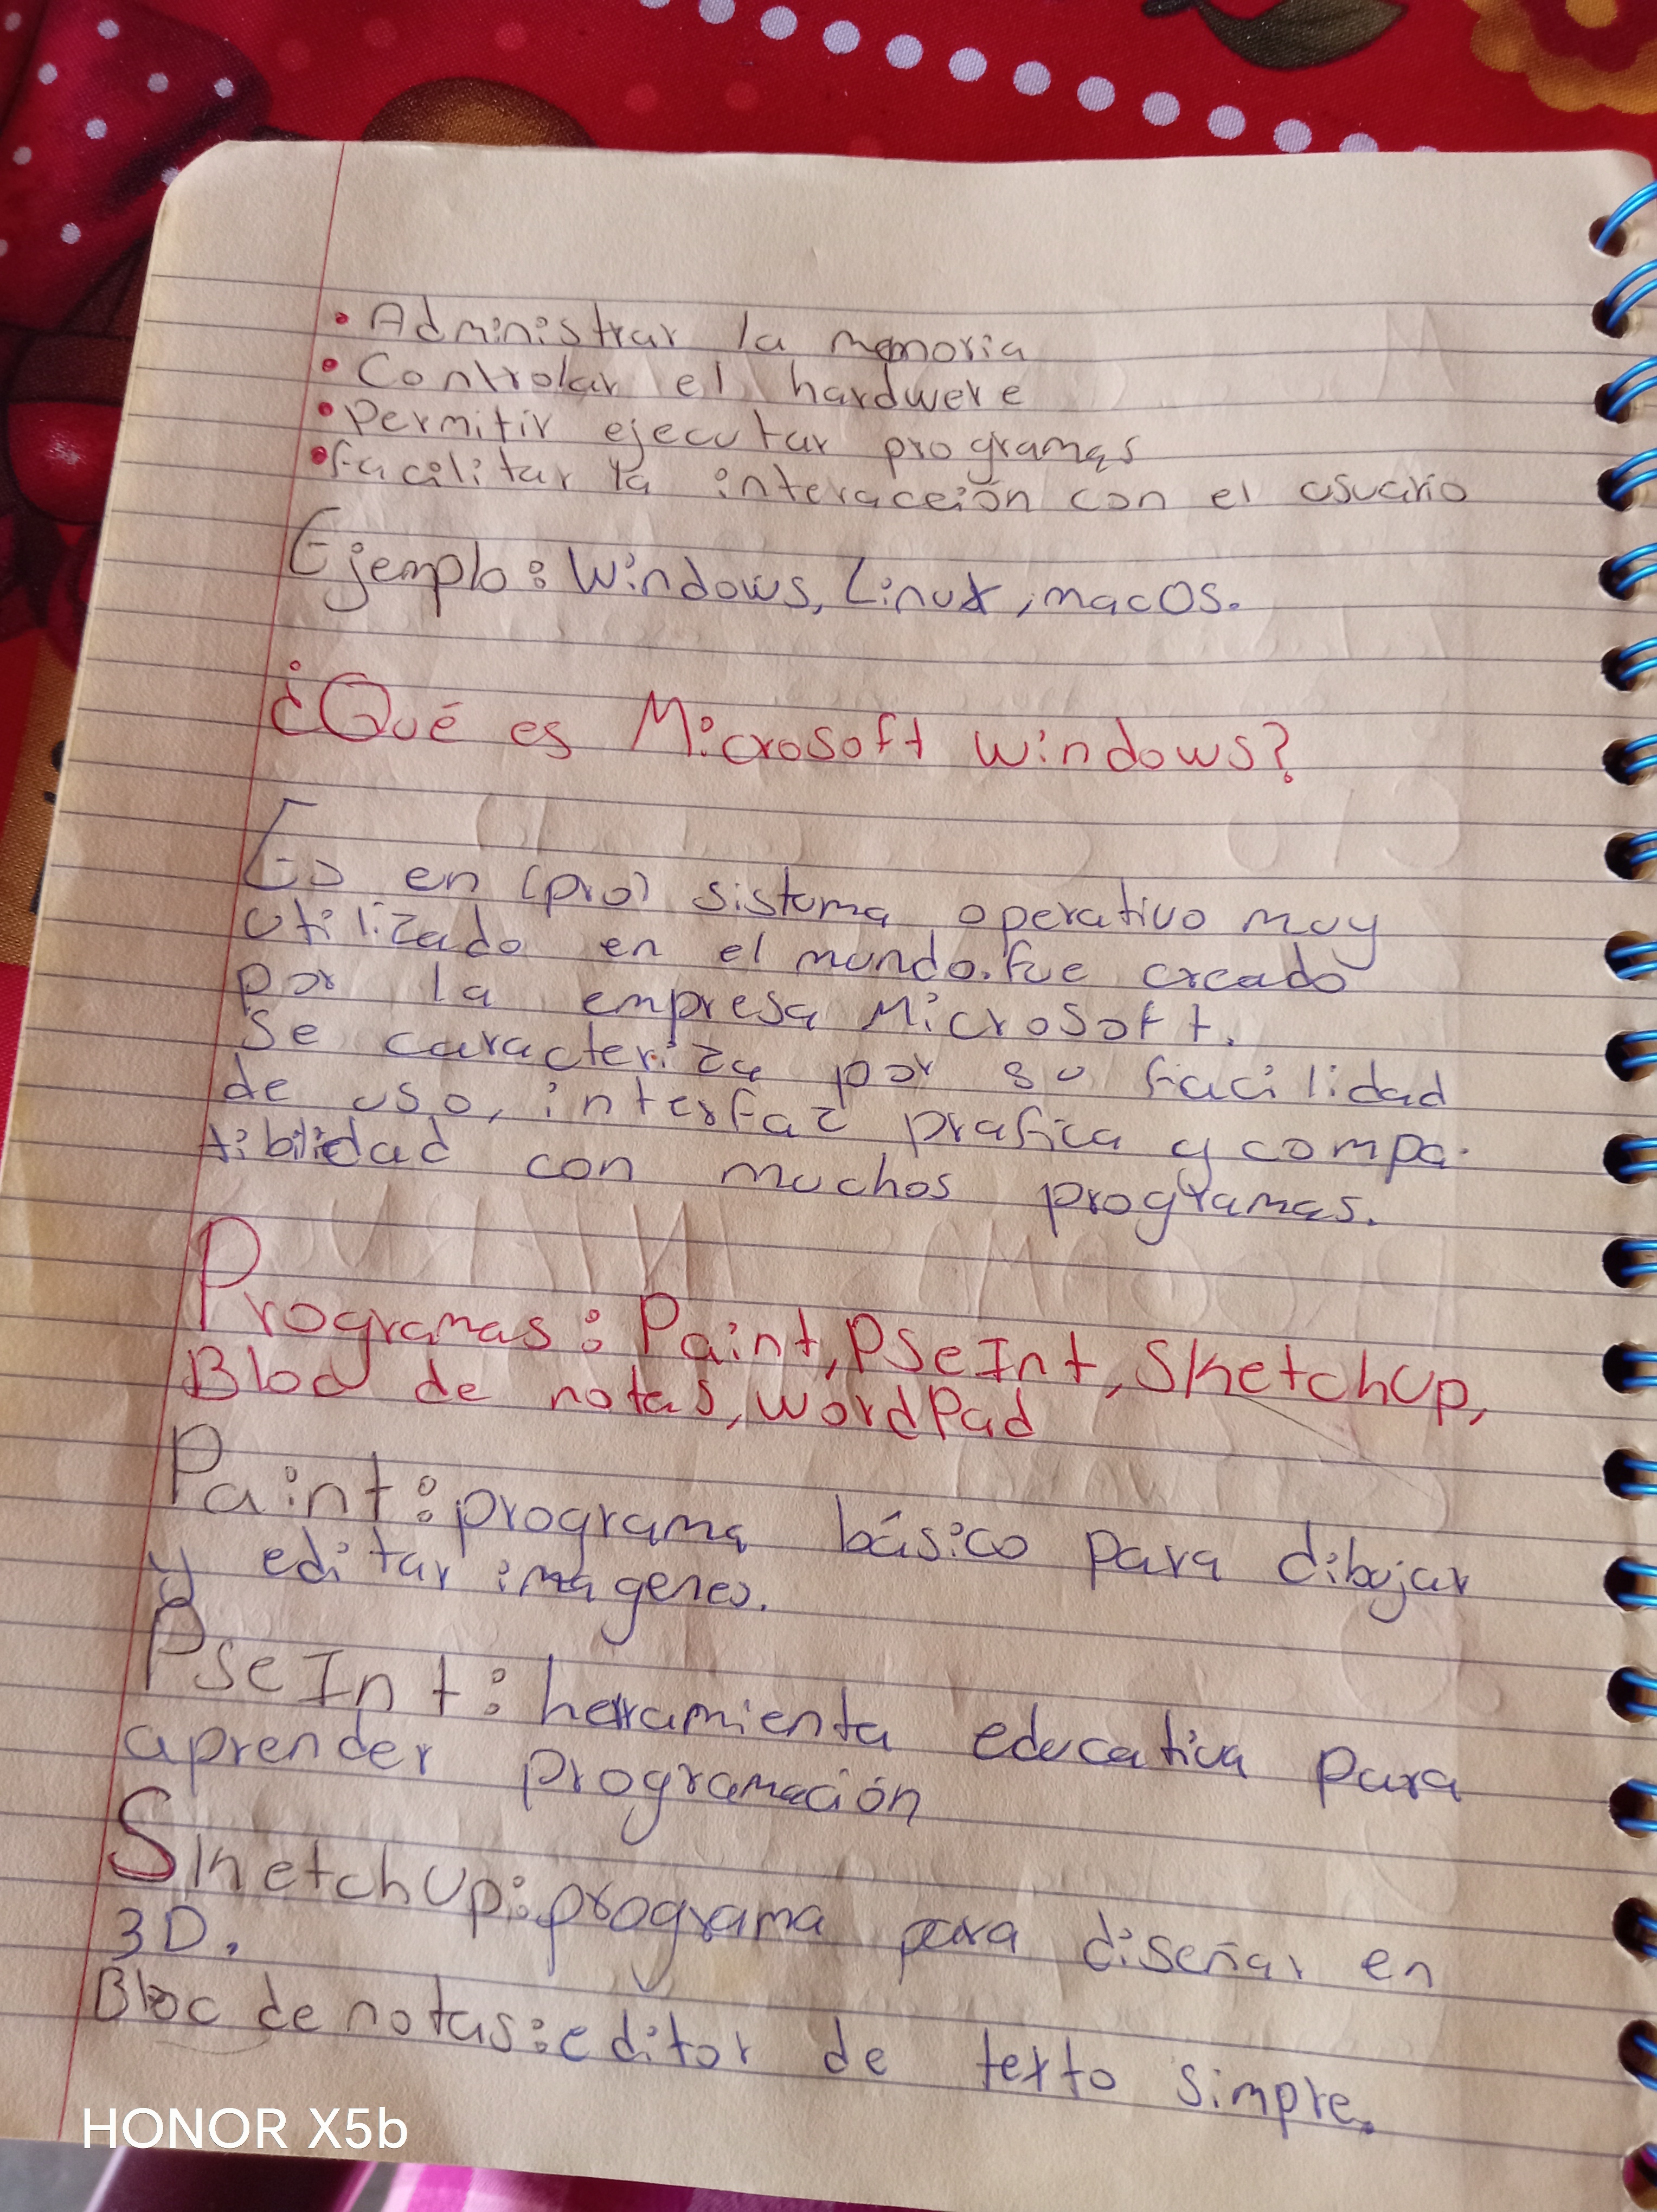 • Administrar la memoria
• Controlar el hardwere
• Permitir ejecutar programas
• Facilitar la interaceión con el usuario
Ejemplo: Windows, Linux, macOS.
¿Qué es Microsoft windows?
Es en (pro) sistema operativo muy
utilizado en el mundo. Fue creado
por la empresa Microsoft.
Se caracteriza por su facilidad
de uso, interfaz prafica y compa-
tibilidad con muchos programas.
Programas: Paint, PSeInt, SketchUp,
Bloc de notas, WordPad
Paint: programa básico para dibujar
y editar imagenes.
PSeInt: herramienta educativa para
aprender programación
SketchUp: programa para diseñar en
3D.
Bloc de notas: editor de texto simple.
HONOR X5b